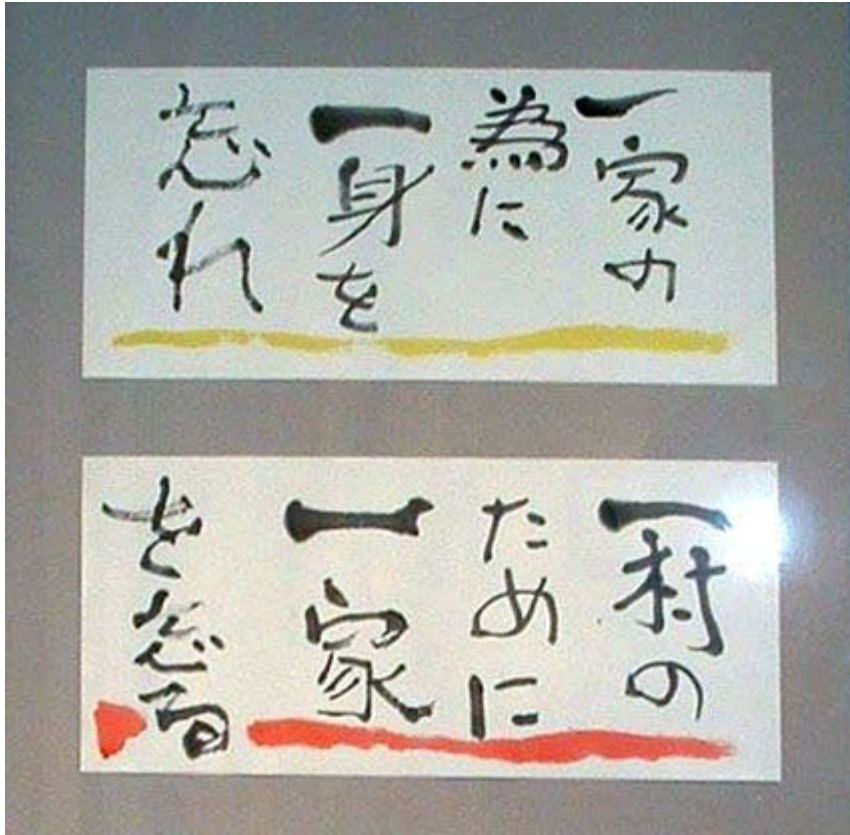 一家の
為に
一身を
忘れ
一村の
ために
一家
を忘る